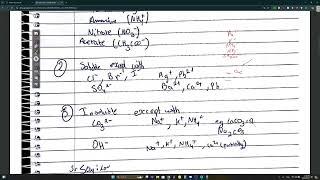 Ammonium (NH4+)
Nitrate (NO3-)
Acetate (CH3COO-)
② Soluble except with
Cl-, Br-, I- Ag+, Pb2+
SO4 2- Ba2+, Ca2+, Pb
③ Insoluble except with
CO3 2- Na+, K+, NH4+ eg CaCO3
Na2CO3
OH- Na+, K+, NH4+, Ca2+ (partially)